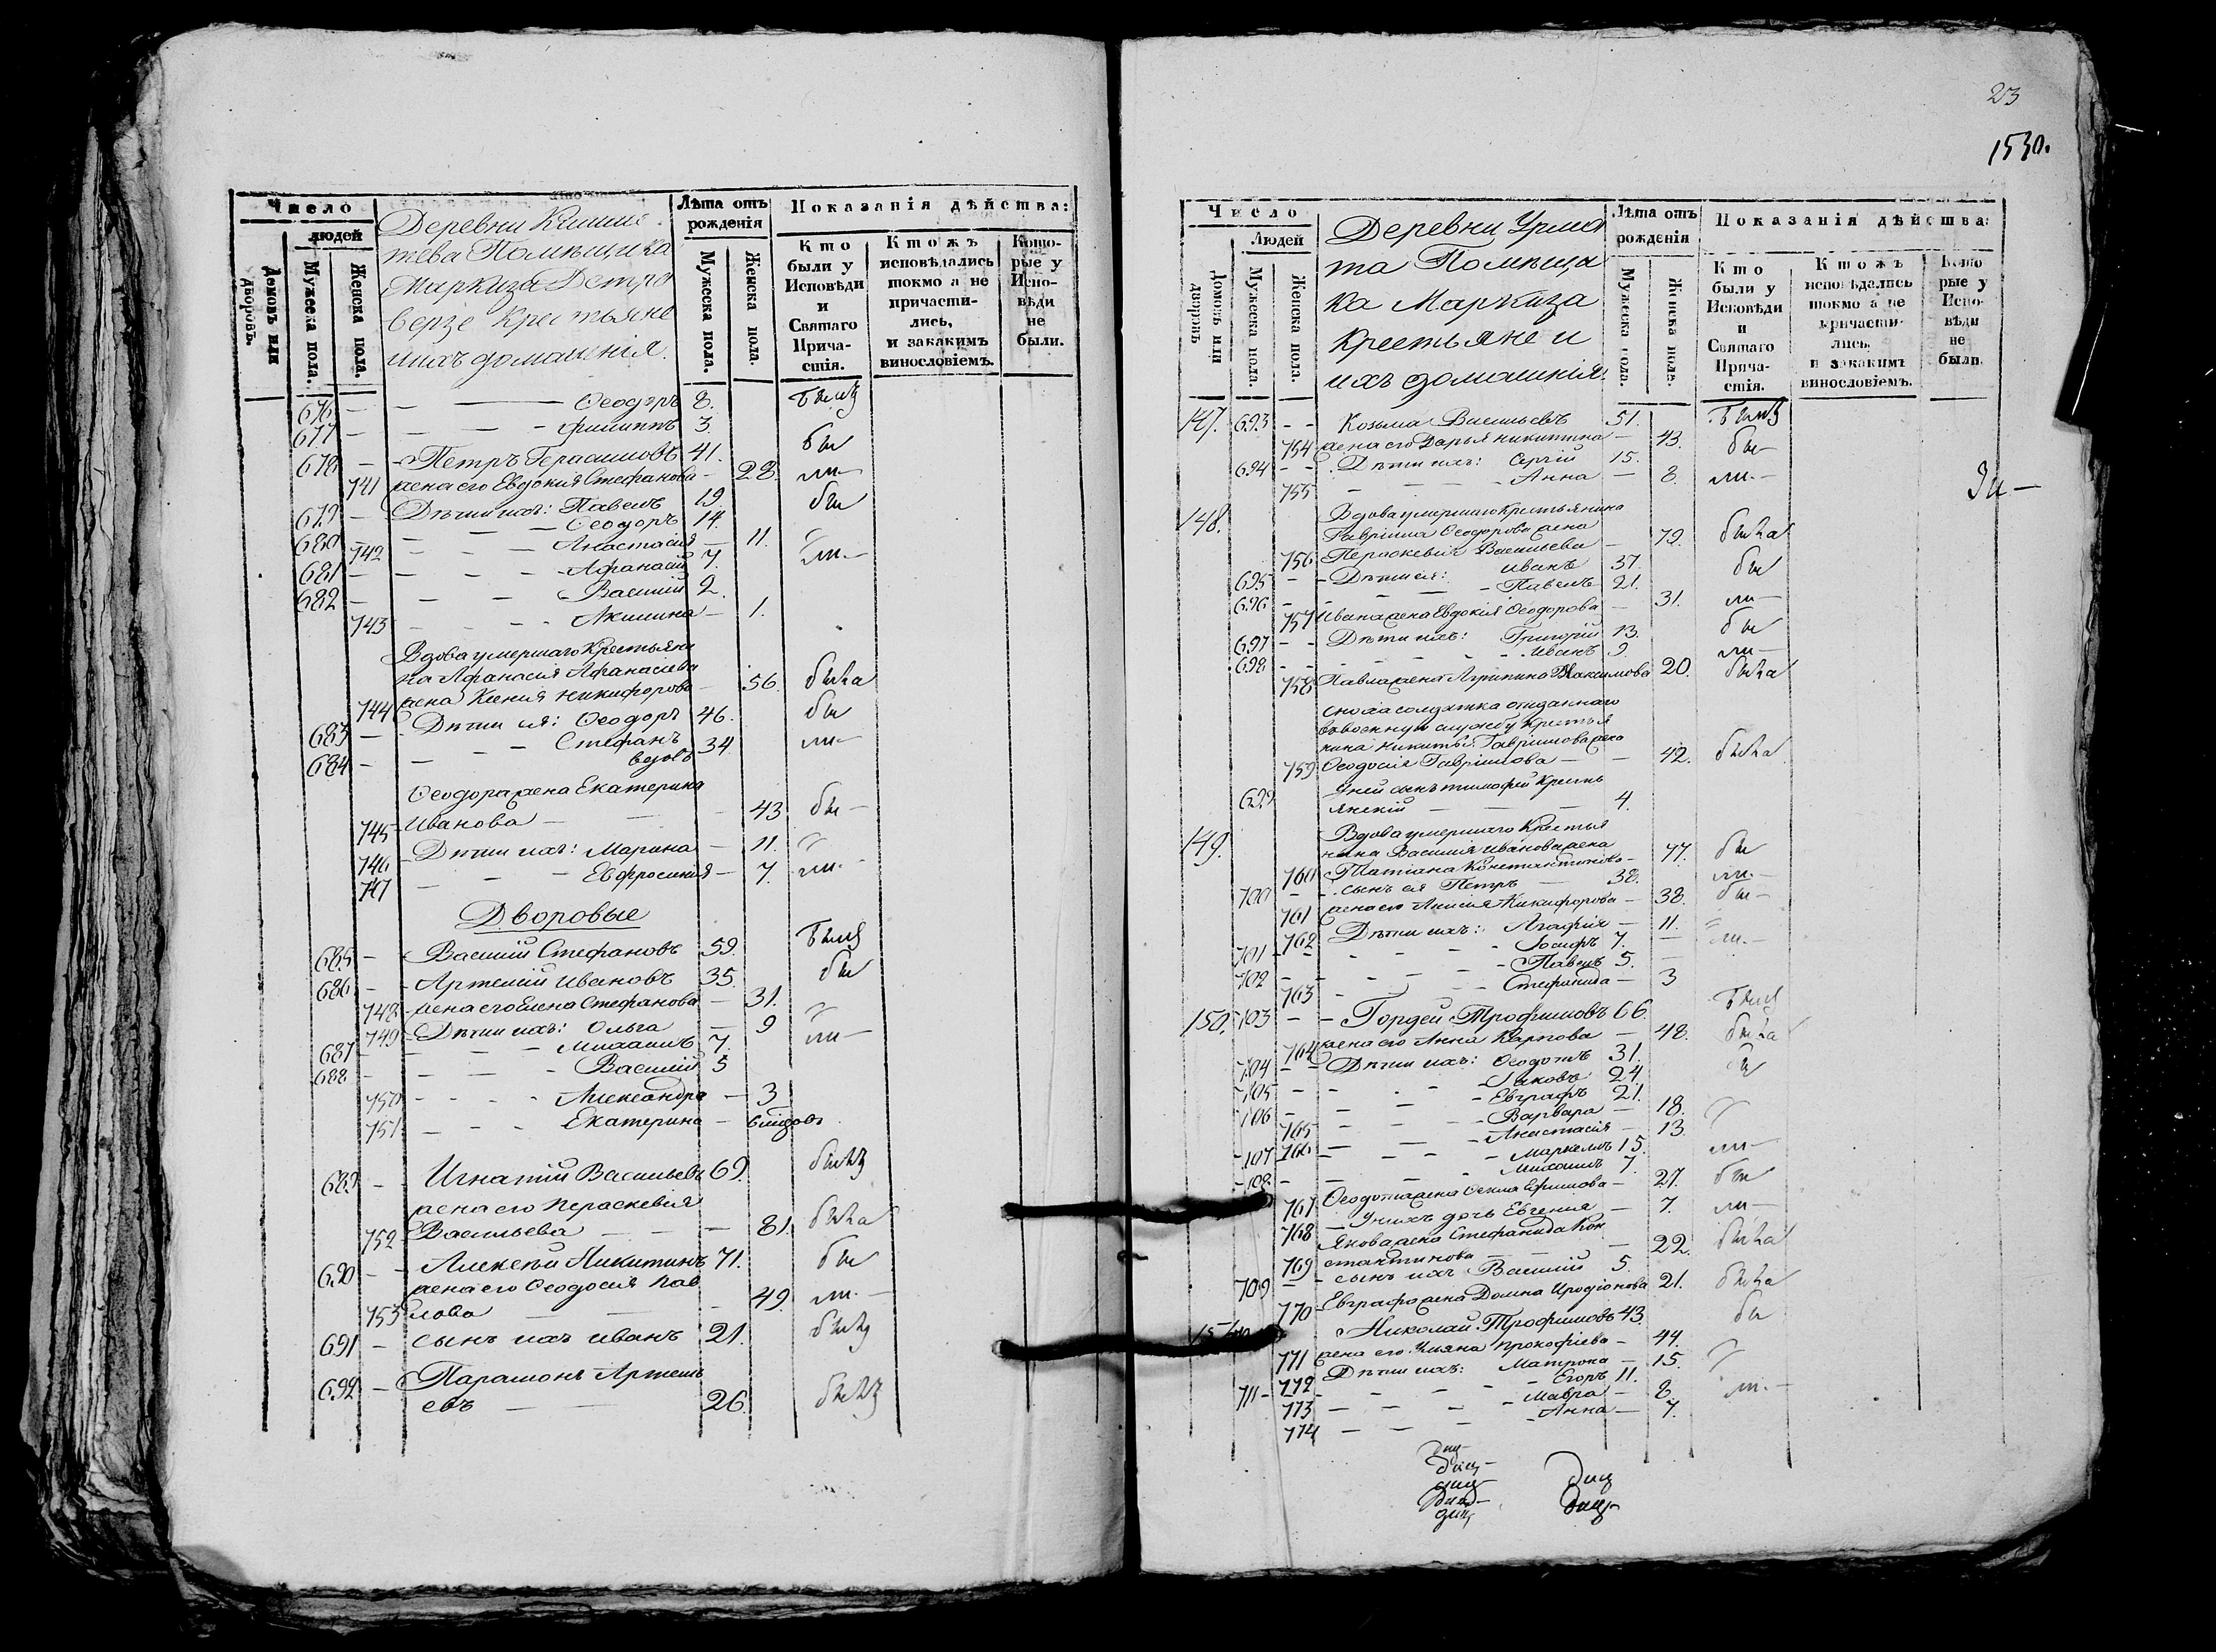 Число
людей
Домовъ или дворовъ.
Мужеска пола.
Женска пола.
Деревни
тева Помѣщика
Маркиза Де тра
версе Крестьяне
и ихъ домашнія.
Лѣта отъ рожденія
Мужеска пола.
Женска пола.
Показанія дѣйства:
Кто были у Исповѣди и Святаго Прича-стія.
Ктожъ исповѣдались токмо а не причасти-лись, и закакимъ винословіемъ.
Кото-рые у Испо-вѣди не были.
676 — — Ѳеодоръ 8. былъ
677 — — Филиппъ 3.
678 — Петръ Герасимовъ 41. бы
741 жена его Евдокия Стефанова — 28. ли —
679 — Дѣти ихъ: Павелъ 19. бы
680 — — Ѳеодоръ 14.
742 — — Анастасия — 11.
681 — — Афанасій 7. ли —
682 — — Василій 2.
743 — — Акилина — 1.
Вдова умершаго Крестьяни
на Афанасия Афанасиева
744 жена Ксения Никифорова — 56. была
683 — Дѣти ея: Ѳеодоръ 46. бы
684 — — Стефанъ 34. ли —
вдовъ
Ѳеодора жена Екатерина
745 Иванова — 43 бы —
746 Дѣти ихъ: Марина — 11.
747 — — Евфросиния — 7. ли —
Дворовые
685 — Василій Стефановъ 59. былъ
686 — Артемій Ивановъ 35. бы
748 жена его Елена Стефанова — 31.
749 Дѣти ихъ: Ольга — 9
687 — — Михаилъ 7. ли —
688 — — Василій 5
750 — — Александра — 3
751 — — Екатерина —
689 — Игнатій Васильевъ 69. былъ
жена его Параскевія
752 Васильева — 81. была
690 — Алексѣй Никитинъ 71. бы
жена его Ѳеодосия Пав
753 лова — 49. ли. —
691 — сынъ ихъ Иванъ 21. былъ
692 — Парамонъ Артемь
евъ — 26. былъ
23
1530.
Число
Людей
Домовъ или дворовъ
Мужеска пола.
Женска пола.
Деревни Урмя
та Помѣщи
ка Маркиза
Крестьяне и
ихъ домашнія.
Лѣта отъ рожденія
Мужеска пола.
Женска пола.
Показанія дѣйства:
Кто были у Исповѣди и Святаго Прича-стія.
Ктожъ исповѣдались токмо а не причасти-лись, и закакимъ винословіемъ.
Кото-рые у Испо-вѣди не были.
147. 693 — Козьма Васильевъ 51. былъ
754 жена его Дарья Никитина — 43. бы —
694 — Дѣти ихъ: Сергій 15.
755 — — Анна — 8. ли. —
148. Вдова умершаго Крестьянина
Гавріила Ѳеодорова жена
756 Параскевия Васильева — 79. была
695 — Дѣти ея: Иванъ 37. бы
696 — — Павелъ 21.
757 Ивана жена Евдокія Ѳеодорова — 31. ли —
697 — Дѣти ихъ: Григорій 13. бы
698 — — Иванъ 9. ли —
758 Павла жена Агрипина Максимова 20. была
сноха солдатка отданнаго
въ военную службу Крестья
нина Никиты Гавріилова жена
759 Ѳеодосия Гавріилова — 42. была
699 У ней сынъ Тимофей Кресть
янскій — 4.
149. Вдова умершаго Крестья
нина Василия Иванова жена
760 Татіана Константинова — 77. бы
700 — сынъ ея Петръ — 38. ли. —
761 жена его Анисия Никифорова — 38. бы —
762 Дѣти ихъ: Агафія — 11.
701 — — Іосифъ 7. ли. —
702 — — Павелъ 5.
763 — — Стефанида — 3
150. 703 — Гордей Трофимовъ 66. былъ
764 жена его Анна Карпова — 48. была
704 — Дѣти ихъ: Ѳеодотъ 31. бы
705 — — Іаковъ 24.
706 — — Евграфъ 21.
765 — — Варвара — 18.
766 — — Анастасія — 13.
707 — — Маркелъ 15. ли —
708 — — Михаилъ 7.
767 Ѳеодота жена Ефимова — 27. бы
768 У нихъ дочь Евгения — 7. ли —
Якова жена Стефанида Кон
769 стантинова — 22. была
709 — сынъ ихъ Василій 5.
770 Евграфа жена Домна Иродіонова 21. была
Николай Трофимовъ 43. бы
771 жена его Ульяна Прокофіева — 44.
772 Дѣти ихъ: Матрона — 15.
711 — — Егоръ 11.
773 — — Мавра — 8. ли. —
774 — — Анна — 7.